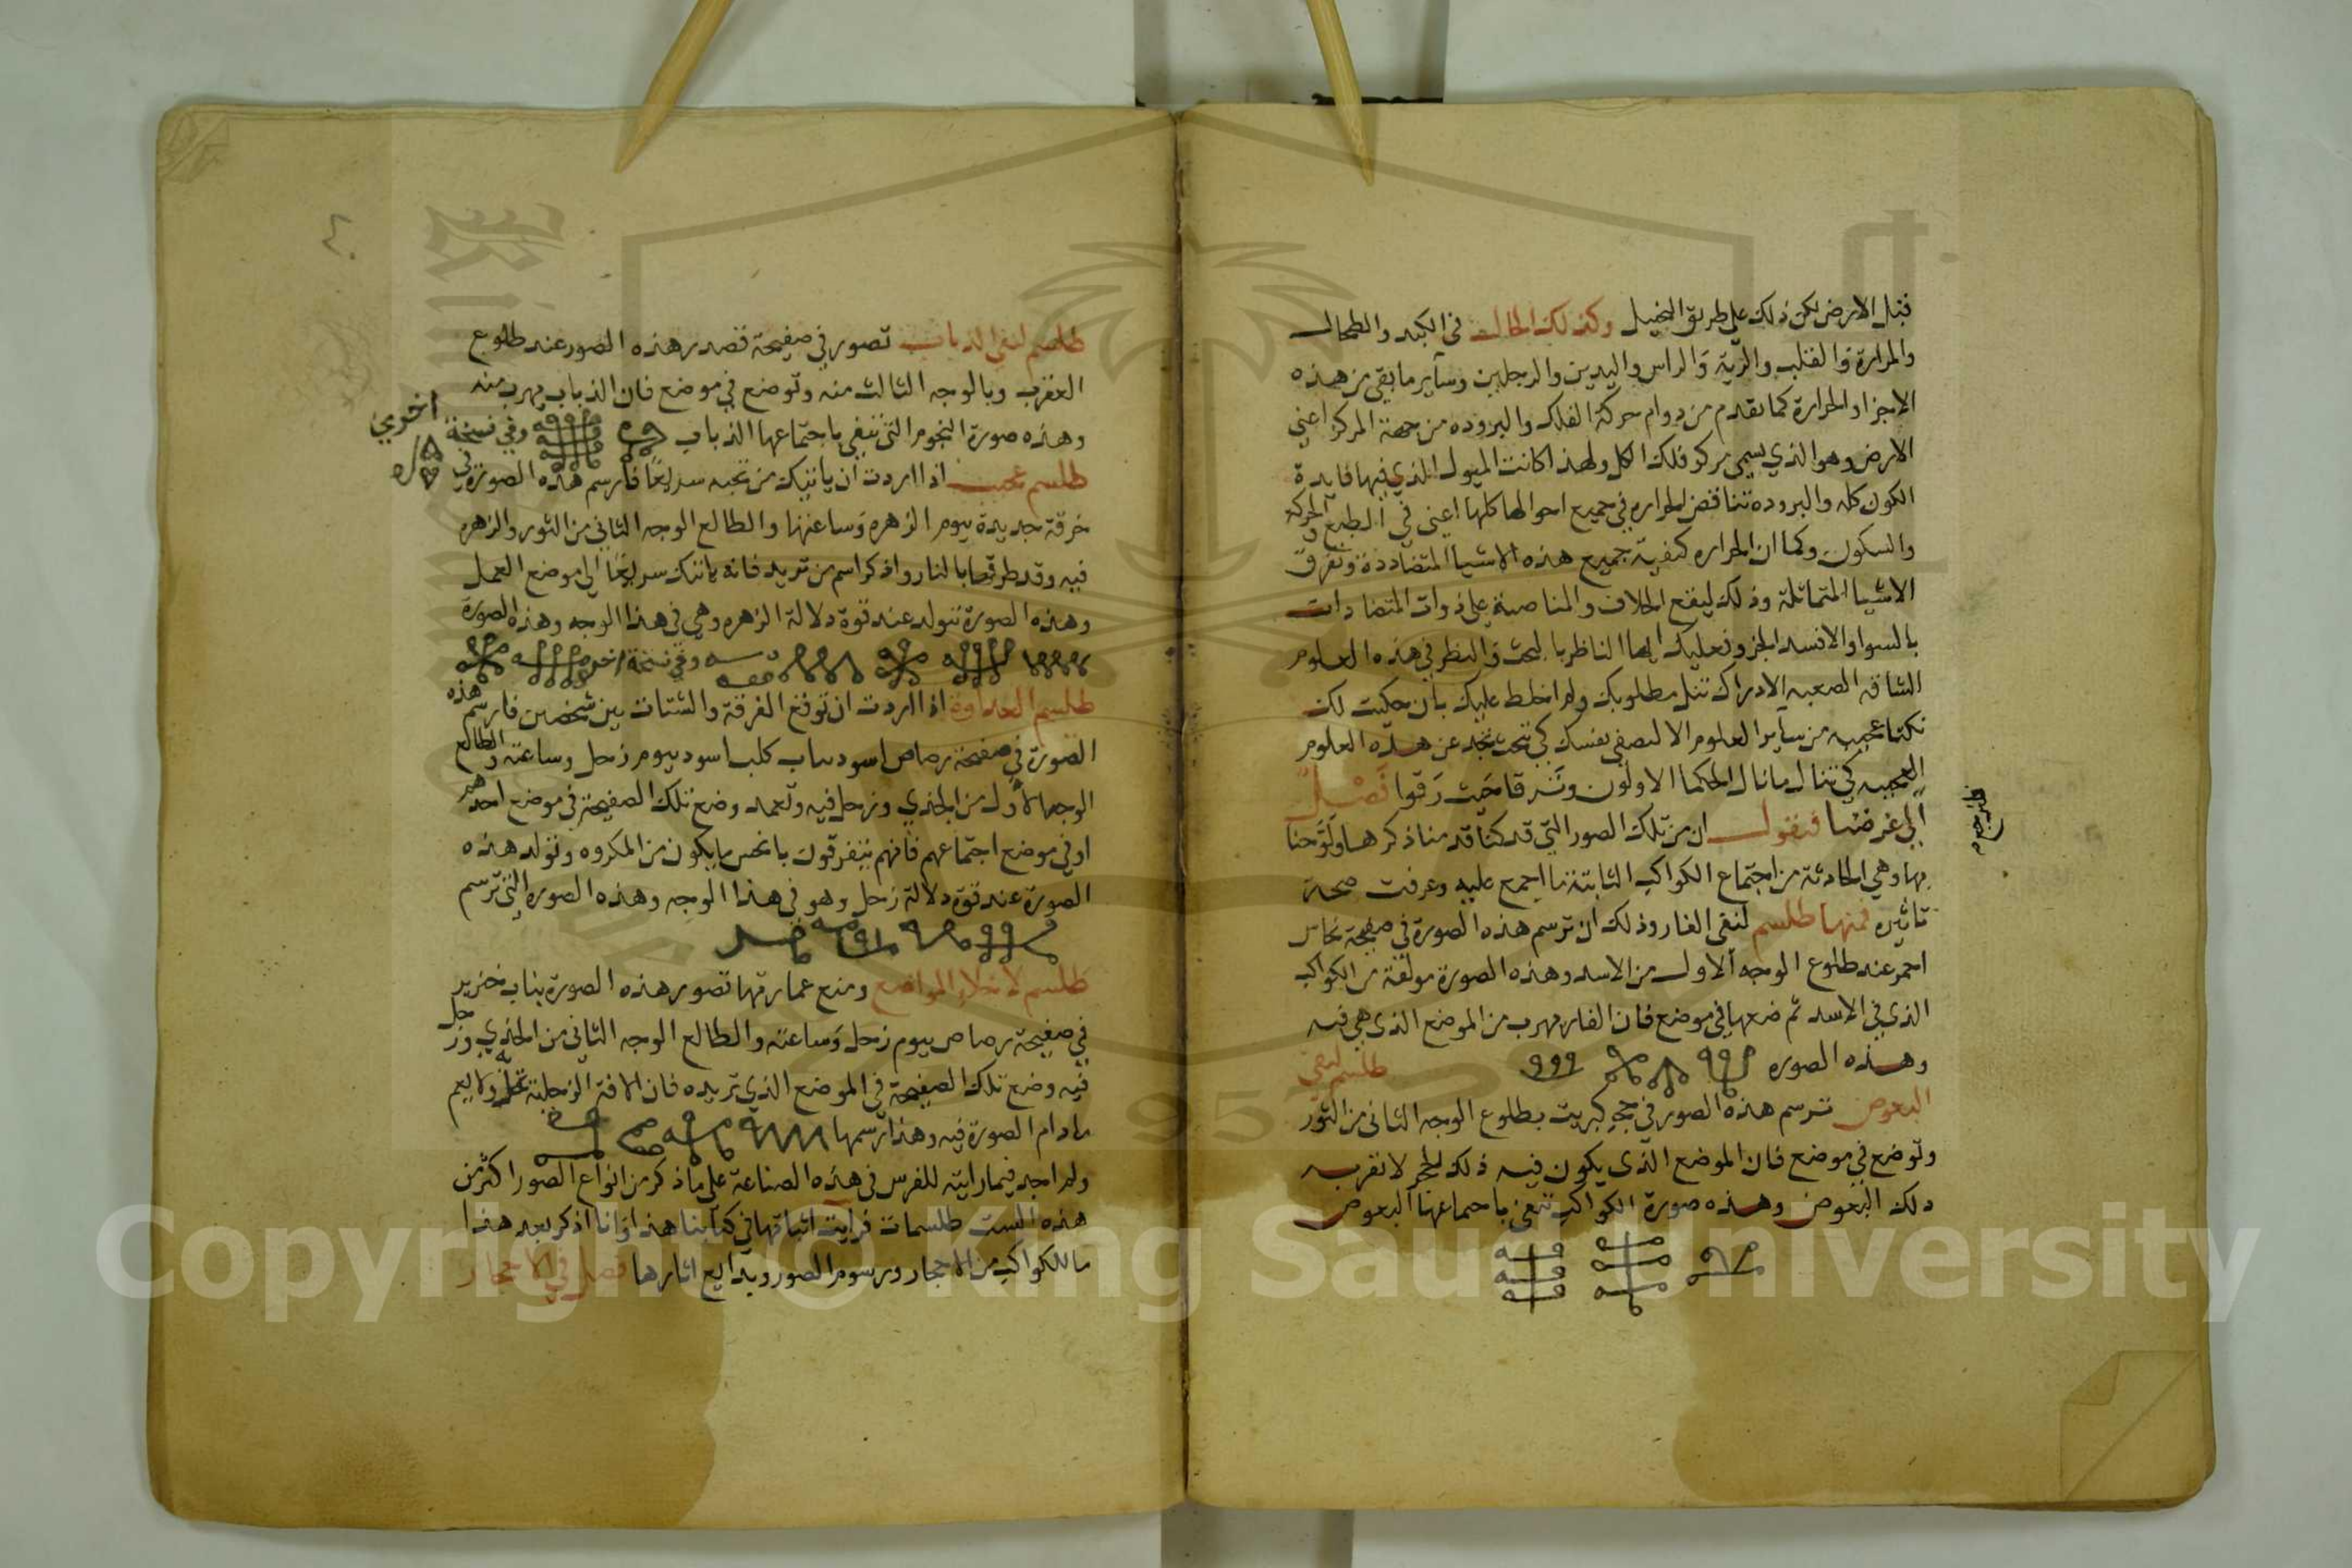 قبل الارض لكن ذلك على طريق التخيل وكذلك الحال في الكبد والطحال
والمرارة والقلب والرية والراس واليدين والرجلين وساير ما بقي من هذه
الاجزا والحرارة كما تقدم من دوام حركة الفلك والبروده من جهة المركز اعني
الارض وهو الذي يسمى مركز فلك الكل ولهذا كانت الميول الذي فيها فايدة
الكون كله والبروده تناقض الحراره في جميع احوالها كلها اعني في الطبع والحركة
والسكون وكما ان الحراره كيفية جميع هذه الاشيا المتضاددة وتفرق
الاشيا المتماثلة وذلك ليقع الخلاف والمناصبة على ذوات المتضادات
بالسوا والا فسد الجزو فعليك ايها الناظر بالبحث والنظر في هذه العلوم
الشاقه الصعبه الادراك تنل مطلوبك ولم اخلط عليك بان حكيت لك
نكتا عجيبه من ساير العلوم الا لتصفي نفسك كي تبحث بجد عن هذه العلوم
العجيبه كي تنال ما نال الحكما الاولون وترقا حيث رقوا فصل
الى غرضنا فنقول ان من تلك الصور التي قد كنا قدمنا ذكرها ولوحنا
بها وهي الحادثة من اجتماع الكواكب الثابتة ما اجمع عليه وعرفت صحة
تاثيره فمنها طلسم لنفي الفار وذلك ان ترسم هذه الصورة في صفيحة نحاس
احمر عند طلوع الوجه الاول من الاسد وهذه الصورة مولفة من الكواكب
الذي في الاسد ثم ضعها في موضع فان الفار يهرب من الموضع الذي هي فيه
وهذه الصوره طلسم لنفي
البعوض ترسم هذه الصور في حجر كبريت بطلوع الوجه الثاني من الثور
وتوضع في موضع فان الموضع الذي يكون فيه ذلك الحجر لا تقربه
ذلك البعوض وهذه صورة الكواكب تنفي باجتماعها البعوض
٤٠
طلسم لنفي الذباب تصور في صفيحة قصدير هذه الصور عند طلوع
العقرب وبالوجه الثالث منه وتوضع في موضع فان الذباب يهرب منه
وهذه صورة النجوم التي تنفي باجتماعها الذباب وفي نسخة اخري
طلسم عجيب اذا اردت ان ياتيك من تحبه سريعا فارسم هذه الصورة في
خرقة جديدة بيوم الزهره وساعتها والطالع الوجه الثاني من الثور والزهره
فيه وقد طرفها بالنار واذكر اسم من تريد فانه ياتيك سريعا الى موضع العمل
وهذه الصورة تتولد عند قوة دلالة الزهره وهي في هذا الوجه وهذه الصورة
وفي نسخة اخرى
طلسم العداوة اذا اردت ان توقع الفرقة والشتات بين شخصين فارسم هذه
الصورة في صفيحة رصاص اسود بناب كلب اسود بيوم زحل وساعته والطالع
الوجه الاول من الجدي وزحل فيه وتعمد وضع تلك الصفيحة في موضع احدهم
او في موضع اجتماعهم فانهم يتفرقون بانحس ما يكون من المكروه وتتولد هذه
الصورة عند قوة دلالة زحل وهو في هذا الوجه وهذه الصوره التي ترسم
طلسم لاخلا المواضع ومنع عمارتها تصور هذه الصورة بناب خنزير
في صفيحة رصاص بيوم زحل وساعته والطالع الوجه الثاني من الجدي وزحل
فيه وضع تلك الصفيحة في الموضع الذي تريده فان الافة الزحلية تحله ولا يعم
ما دام الصورة فيه وهذا رسمها
ولم اجد فيما رايته للفرس في هذه الصناعة على ما ذكر من انواع الصور اكثر من
هذه الست طلسمات فرايت اثباتها في كتابنا هذا وانا اذكر بعد هذا
ما للكواكب من الاحجار ورسوم الصور وبدايع اثارها فصل في الاحجار
Copyright © King Saud University